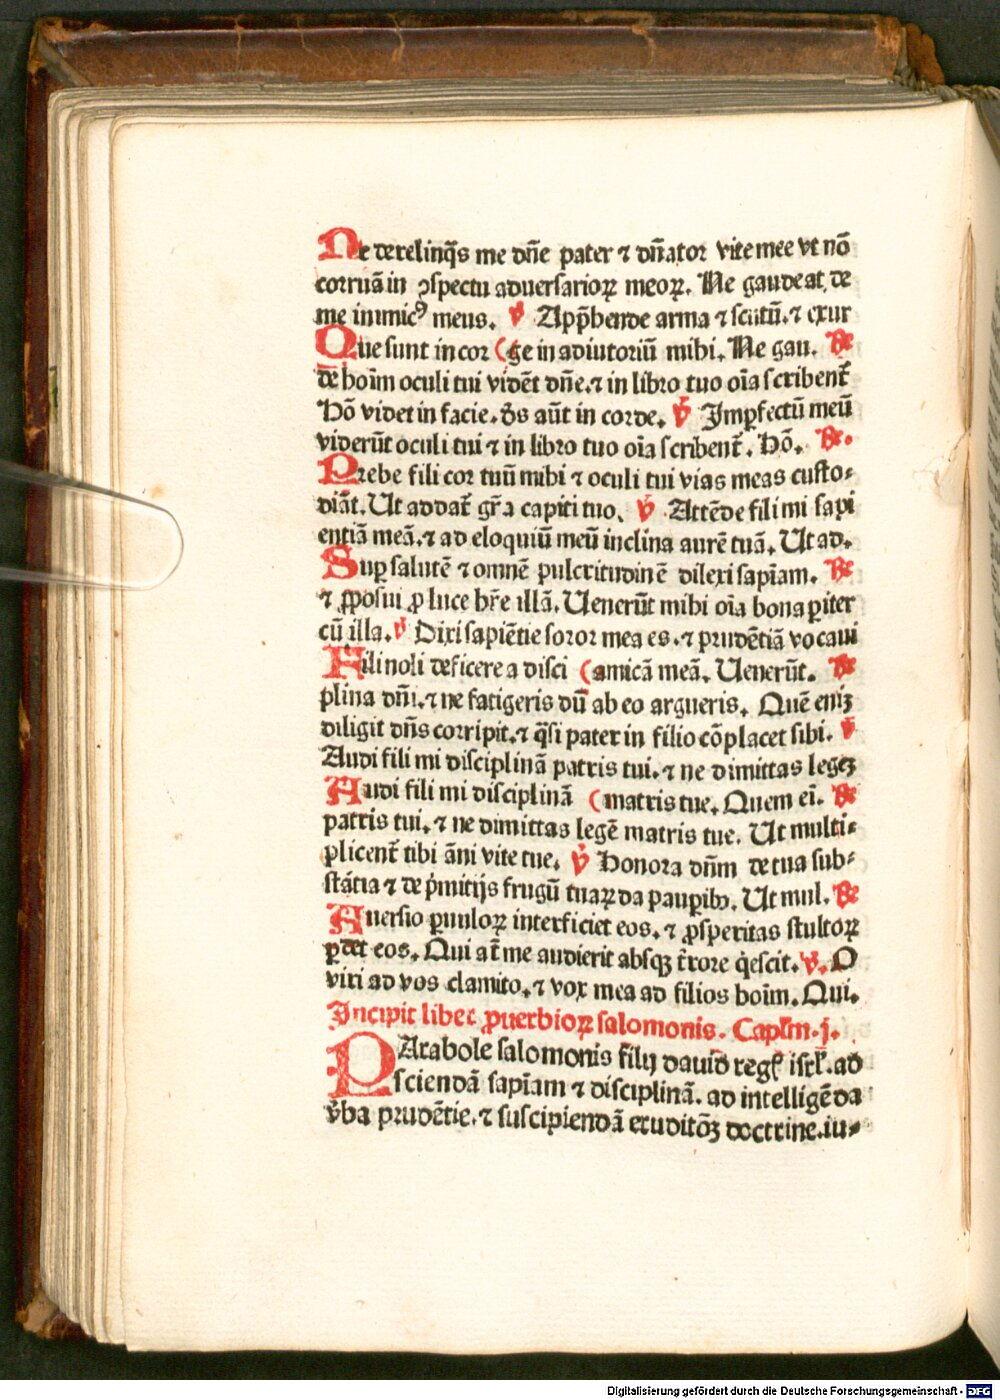 Ne derelinq̃s me dñe pater ⁊ dñator vite mee vt nõ
corruã in ꝯspectu aduersarioꝝ meoꝝ. Ne gaudeat de
me inimicꝰ meus. ℣ App̃hende arma ⁊ scutũ.⁊ exur
Que sunt in cor (ge in adiutoriũ mihi. Ne gau. ℞
de hoĩm oculi tui vidẽt dñe.⁊ in libro tuo oĩa scribent᷑
Hõ videt in facie. d̃s aũt in corde. ℣ Imꝑfectũ meũ
viderũt oculi tui ⁊ in libro tuo oĩa scribent᷑. Hõ. ℞.
Prebe fili cor tuũ mihi ⁊ oculi tui vias meas custo⸗
diãt. Ut addat᷑ gr̃a capiti tuo. ℣ Attẽde fili mi sapi
entiã meã.⁊ ad eloquiũ meũ inclina aurẽ tuã. Ut ad.
Suꝑ salutẽ ⁊ omnẽ pulcritudinẽ dilexi sapĩam. ℞
⁊ ꝓposui ꝓ luce hr̃e illã. Uenerũt mihi oĩa bona ꝑiter
cũ illa. ℣ Dixi sapiẽtie soror mea es.⁊ prudẽtiã vocaui
Fili noli deficere a disci (amicã meã. Uenerũt. ℞
plina dñi.⁊ ne fatigeris dũ ab eo argueris. Quẽ eniꝫ
diligit dñs corripit.⁊ q̃si pater in filio cõplacet sibi. ℣
Audi fili mi disciplinã patris tui.⁊ ne dimittas legeꝫ
Audi fili mi disciplinã (matris tue. Quem ei. ℞
patris tui.⁊ ne dimittas legẽ matris tue. Ut multi⸗
plicent᷑ tibi ãni vite tue. ℣ Honora dñm de tua sub⸗
stãtia ⁊ de p̃mitijs frugũ tuaꝝ da pauꝑibꝫ. Ut mul. ℞
Auersio ꝑuuloꝝ interficiet eos.⁊ ꝓsperitas stultoꝝ
ꝑdet eos. Qui at̃ me audierit absqꝫ t̃rore q̃escit. ℣. O
viri ad vos clamito.⁊ vox mea ad filios hoĩm. Qui.
Incipit liber ꝓuerbioꝝ salomonis. Capl̃m.j.
PArabole salomonis filij dauid regꝭ isrl̃.ad
sciendã sapĩam ⁊ disciplinã. ad intelligẽda
v̉ba prudẽtie.⁊ suscipiendã eruditõꝫ doctrine.iu⸗
Digitalisierung gefördert durch die Deutsche Forschungsgemeinschaft - DFG